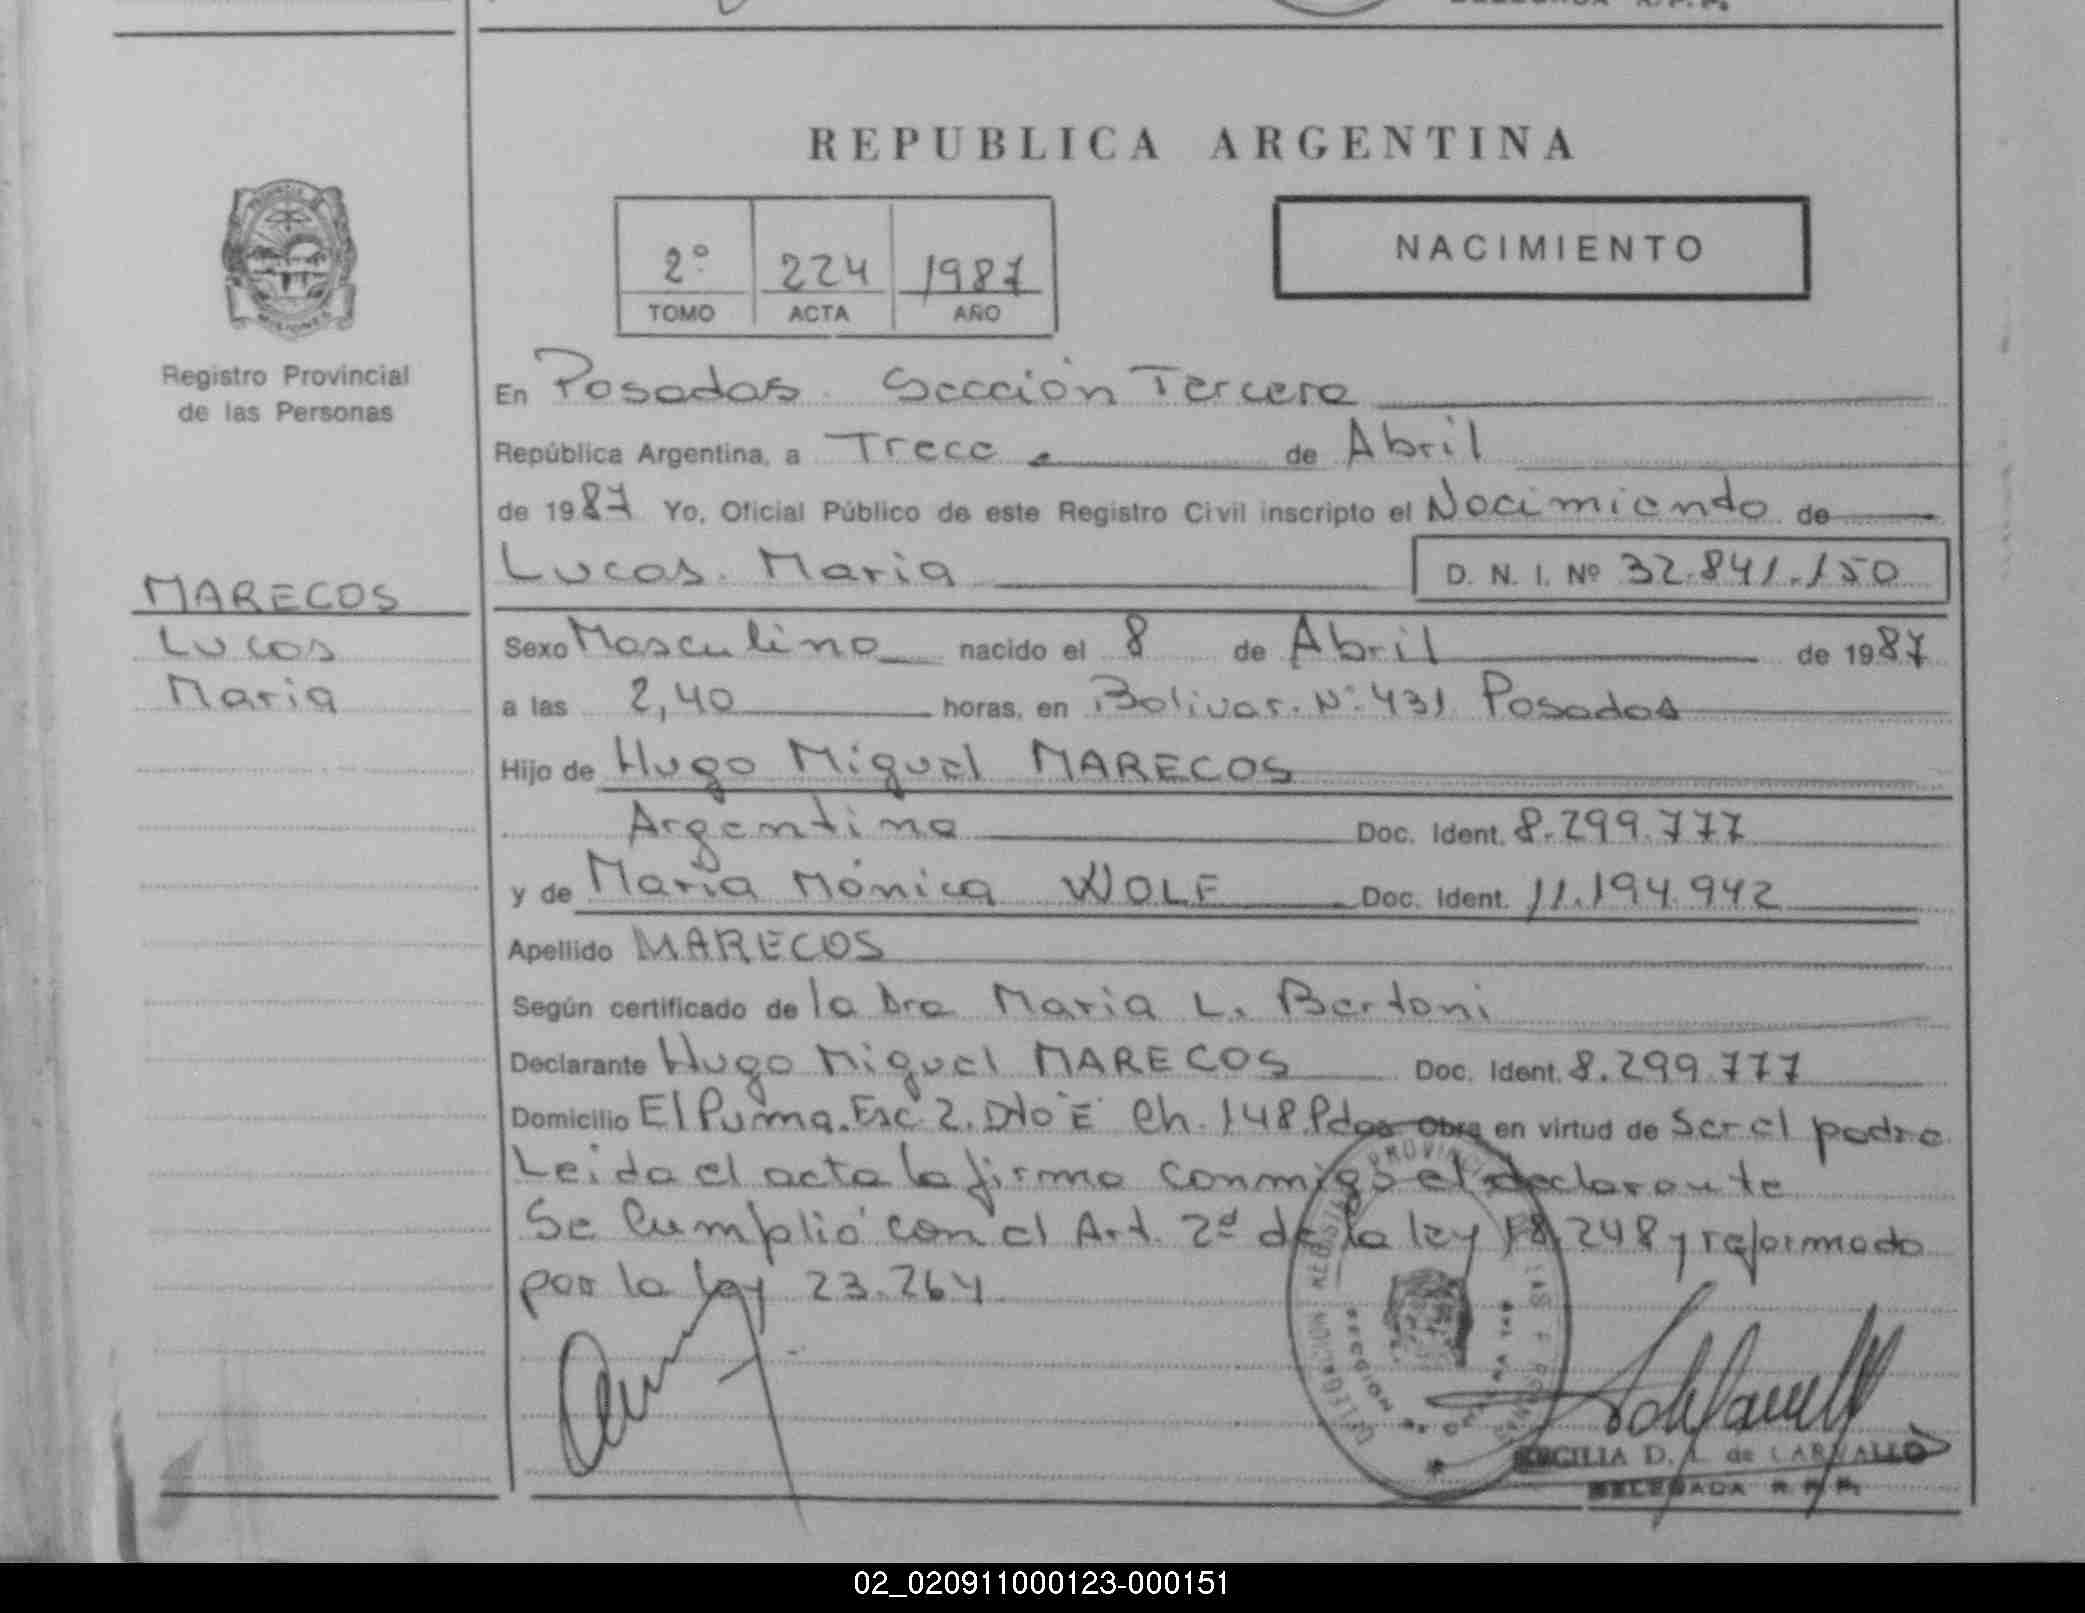 REPUBLICA ARGENTINA
2º 224 1987
TOMO ACTA AÑO
NACIMIENTO
Registro Provincial
de las Personas
MARECOS
Lucas
Maria
En Posadas. Sección Tercera
República Argentina, a Trece de Abril
de 1987 Yo, Oficial Público de este Registro Civil inscripto el Nacimiento de
Lucas. Maria D. N. I. Nº 32.841.150
Sexo Masculino nacido el 8 de Abril de 1987
a las 2,40 horas, en Bolivar. Nº 431 Posadas
Hijo de Hugo Miguel MARECOS
Argentino Doc. Ident. 8.299.777
y de Maria Mónica WOLF Doc. Ident. 11.194.942
Apellido MARECOS
Según certificado de la Dra Maria L. Bertoni
Declarante Hugo Miguel MARECOS Doc. Ident. 8.299.777
Domicilio El Puma. Esc. 2. Dto "E" Ch. 148 Pdas Obra en virtud de Ser el padre
Leida el acta la firma conmigo el declarante
Se Cumplió con el Art. 2º de la ley 18.248 y reformado
por la ley 23.264
PROVINCIA
SECCION
D. L. de CARVALLO
DELEGADA R.P.P.
02_020911000123-000151